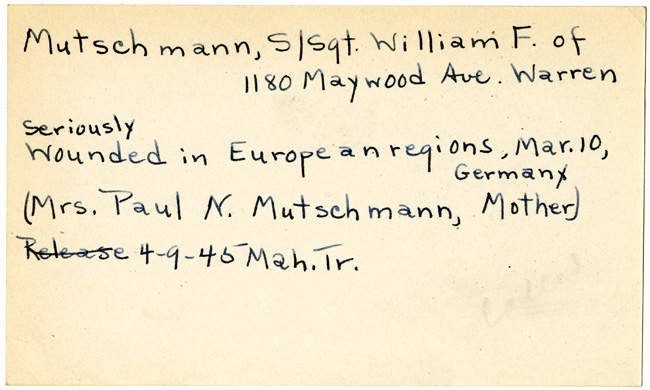 Mutschmann, S/Sgt. William F. of
1180 Maywood Ave. Warren
seriously
Wounded in European regions, Mar. 10,
Germany
(Mrs. Paul N. Mutschmann, Mother)
Release 4-9-45 Mah. Tr.